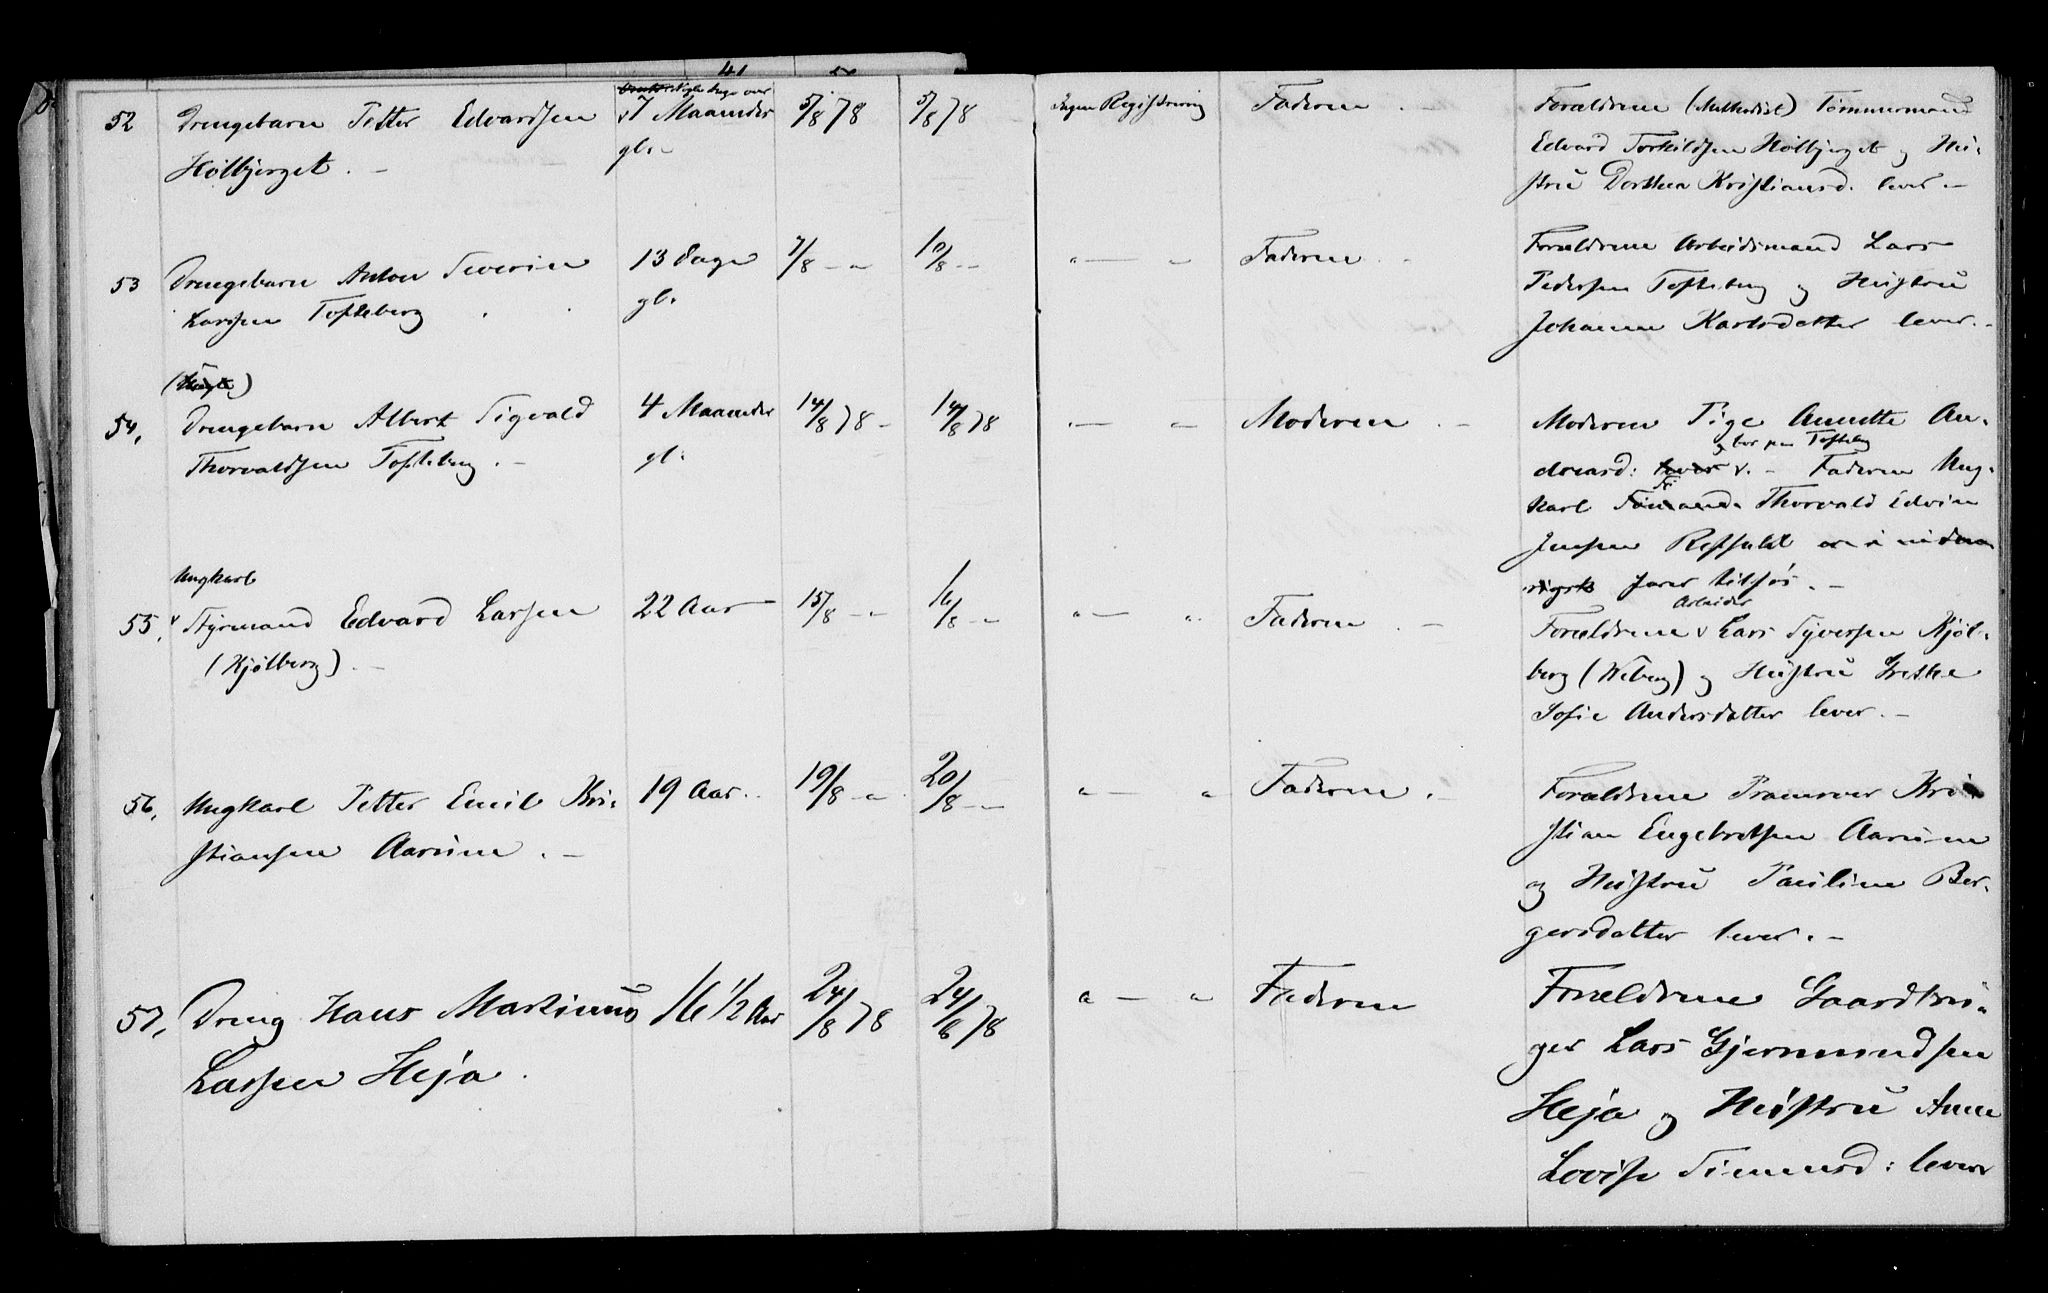 41
52 Drengebarn Petter Edvardsen 7 Maaneder 5/8 78 5/8 78 Ingen Registrering Faderen . - Forældrene (Methodist) Tømmermand
Holbjerget . - gl. - Edvard Torkildsen Holbjerget og Hu-
stru Dorthea Kristiansd. lever -
53 Drengebarn Anton Severin 13 Dage 7/8 - " 10/8 - - " — " Faderen . - Forældrene Arbeidsmand Lars
Larssen Tofteberg . gl. Pedersen Tofteberg og Hustru
Johanne Karlsdatter lever. -
54. Drengebarn Albert Sigvald 4 Maaneder 14/8 78 - 14/8 78 " — " Moderen . - Moderen Pige Annette An-
Thorvaldsen Tofteberg . - gl. dreasd: lever - Faderen Ung-
bor paa Tofteberg
karl Thorvald Edvin
Jensen
farer tilsjøs. -
Ungkarl
55. Styrmand Edvard Larsen 22 Aar 15/8 - " 16/8 - " " — " Faderen . - Forældrene Arbeider Lars Syversen Kjøl-
(Kjølberg) . - berg (Wiberg) og Hustru Grethe
Sofie Andersdatter lever. -
56. Ungkarl Petter Emil Kri- 19 Aar. 19/8 - " 20/8 - " " — " Faderen . - Forældrene Pramroer Kri-
stiansen Aarum . - stian Engebretsen Aarum
og Hustru Pauline Ber-
gersdatter lever. -
57. Dreng Hans Martinus 16 1/2 Aar 24/8 78 24/8 78 " — " Faderen Forældrene Gaardbru-
Larssen Heja . ger Lars Gjermundsen
Heja og Hustru Anne
Lovise Simensd: lever